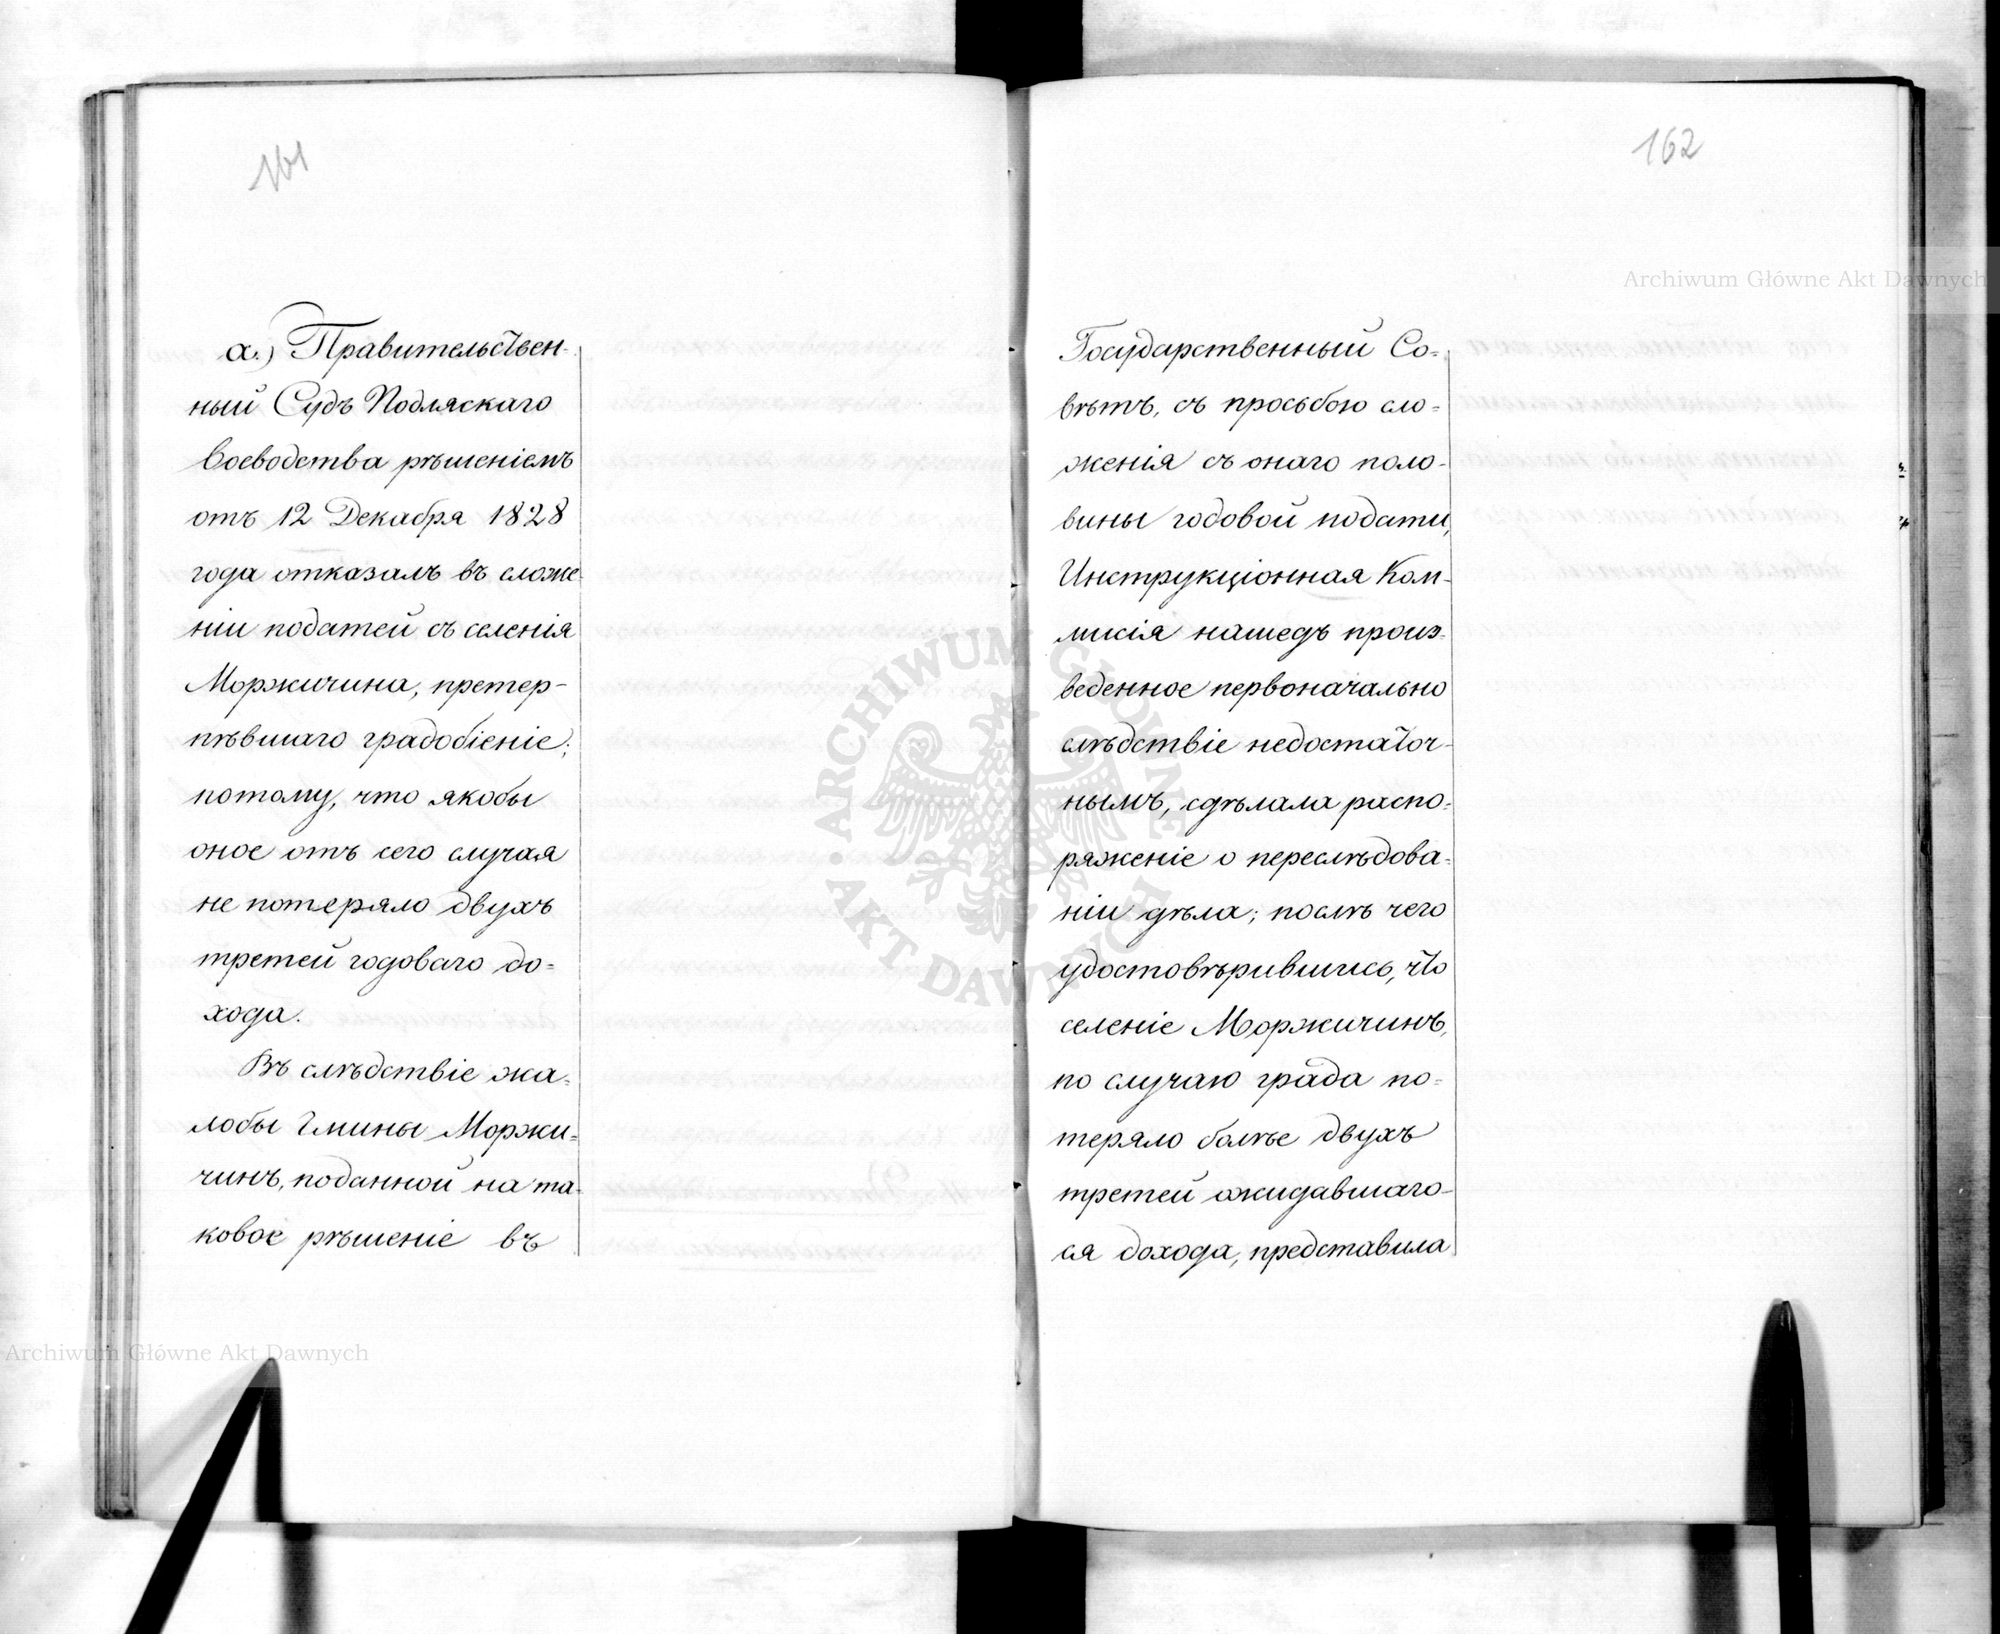 161
а.) Правительствен-
ный Судъ Подляскаго
Воеводства рѣшеніемъ
отъ 12 Декабря 1828
года отказалъ въ сложе-
ніи податей съ селенія
Моржичина, претер-
пѣвшаго градобіеніе;
потому, что якобы
оное отъ сего случая
не потеряло двухъ
третей годоваго до=
хода.
Въ слѣдствіе жа=
лобы Гмины Моржи=
чинъ, поданной на та=
ковое рѣшеніе въ
162
Государственный Со=
вѣтъ, съ просьбою сло=
женія съ онаго поло-
вины годовой подати,
Инструкціонная Ком-
мисія нашедъ произ=
веденное первоначально
слѣдствіе недостаточ-
нымъ, сдѣлала распо=
ряженіе о переслѣдова=
ніи дѣла; послѣ чего
удостовѣрившись, что
селеніе Моржичинъ,
по случаю града по=
теряло болѣе двухъ
третей ожидавшаго-
ся дохода, представила
Archiwum Główne Akt Dawnych
Archiwum Główne Akt Dawnych
ARCHIWUM GŁÓWNE AKT DAWNYCH